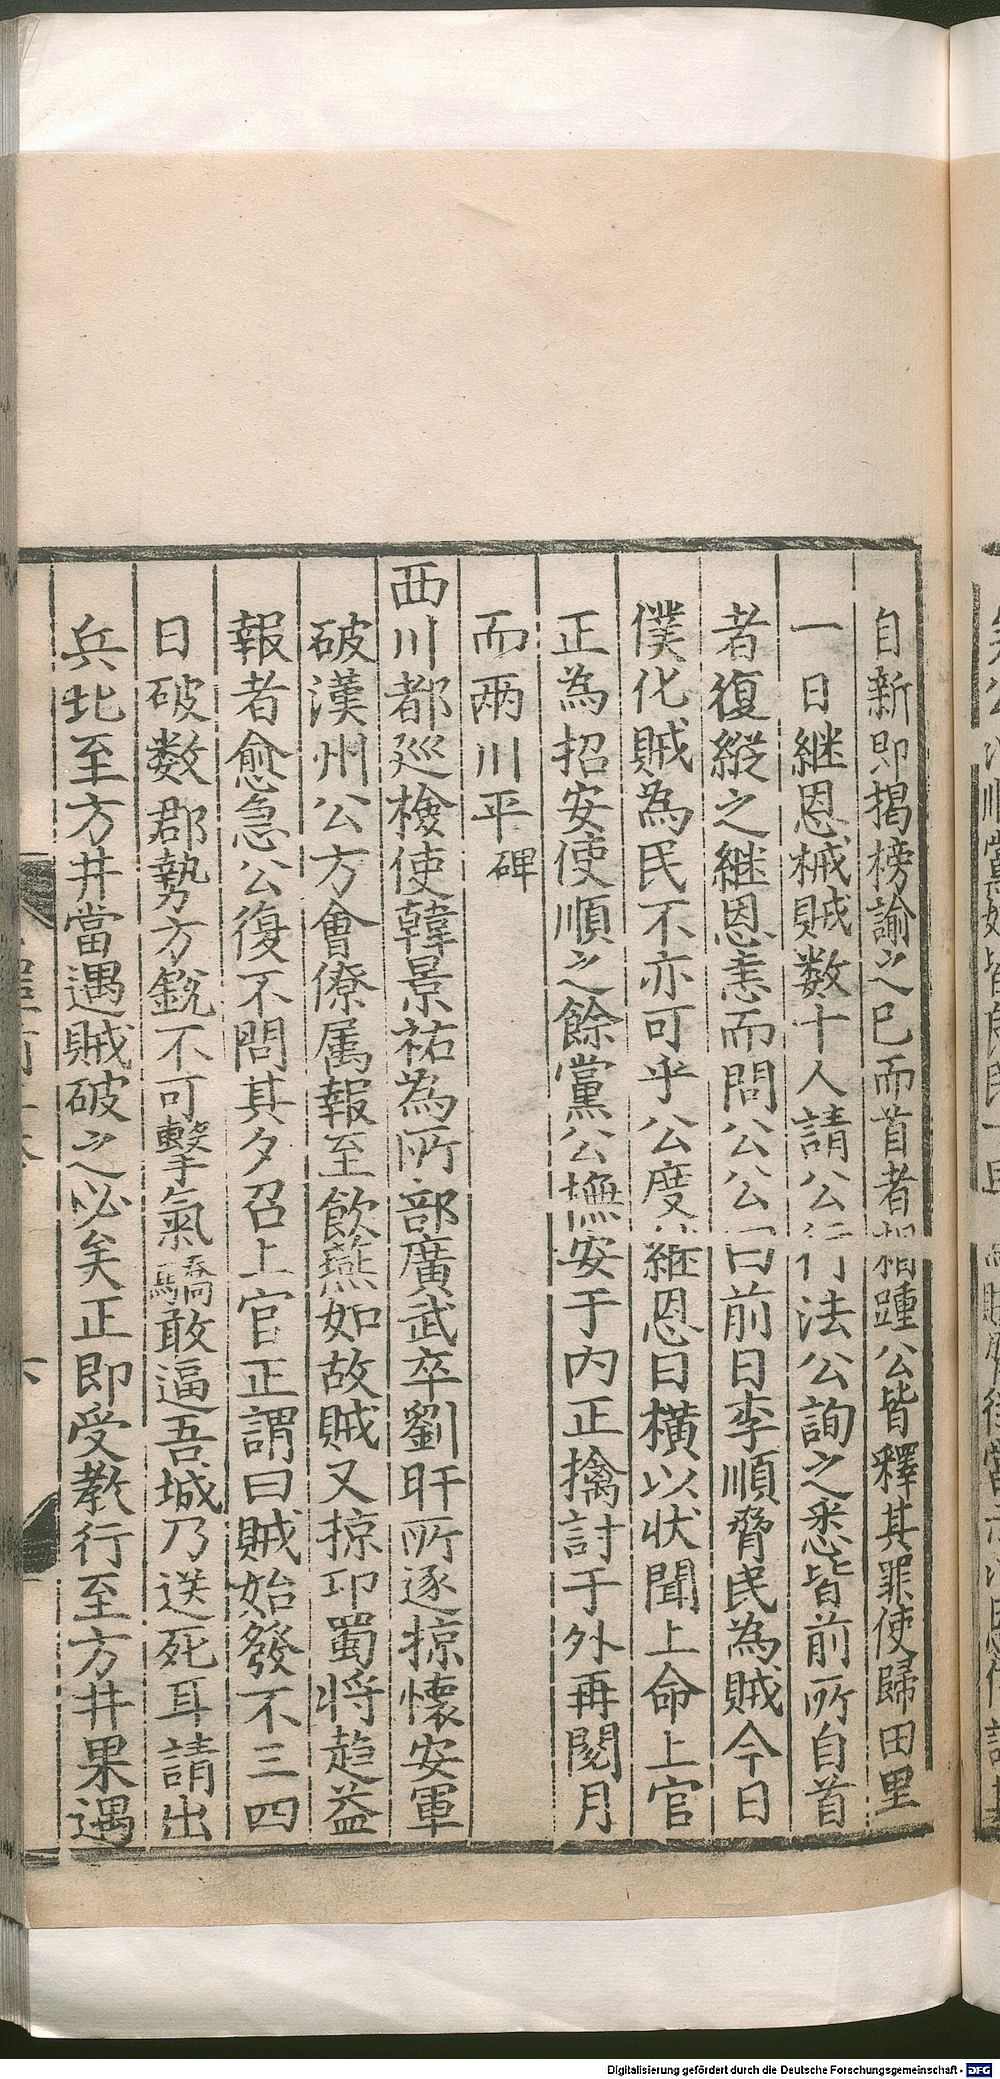 自新即揭榜諭之已而首者相踵公皆釋其罪使歸田里
一日継恩械賊数十人請公行法公詢之悉皆前所自首
者復縱之継恩恚而問公公曰前日李順脅民為賊今日
僕化賊為民不亦可乎公度継恩日橫以状聞上命上官
正為招安使順之餘黨公撫安于内正擒討于外再閱月
而兩川平碑
西川都廵檢使韓景祐為所部廣武卒劉旰所逐掠懷安軍
破漢州公方會僚属報至飲燕如故賊又掠邛蜀将趍益
報者愈急公復不問其夕召上官正謂曰賊始發不三四
日破数郡勢方銳不可擊氣驕敢逼吾城乃送死耳請出
兵北至方井當遇賊破之必矣正即受教行至方井果遇
Digitalisierung gefördert durch die Deutsche Forschungsgemeinschaft - DFG